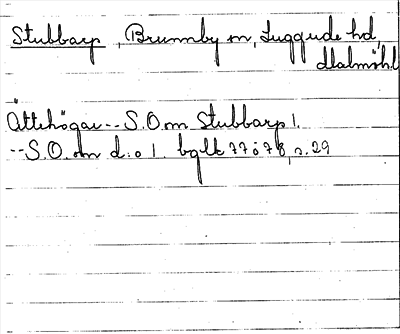 Stubbarp, Brunnby sn, Luggude hd,
Malmöhl
Ättehögar -- S.O.om Stubbarp 1.
-- S.O. om d:o 1. bglt 77 o 78, s. 29